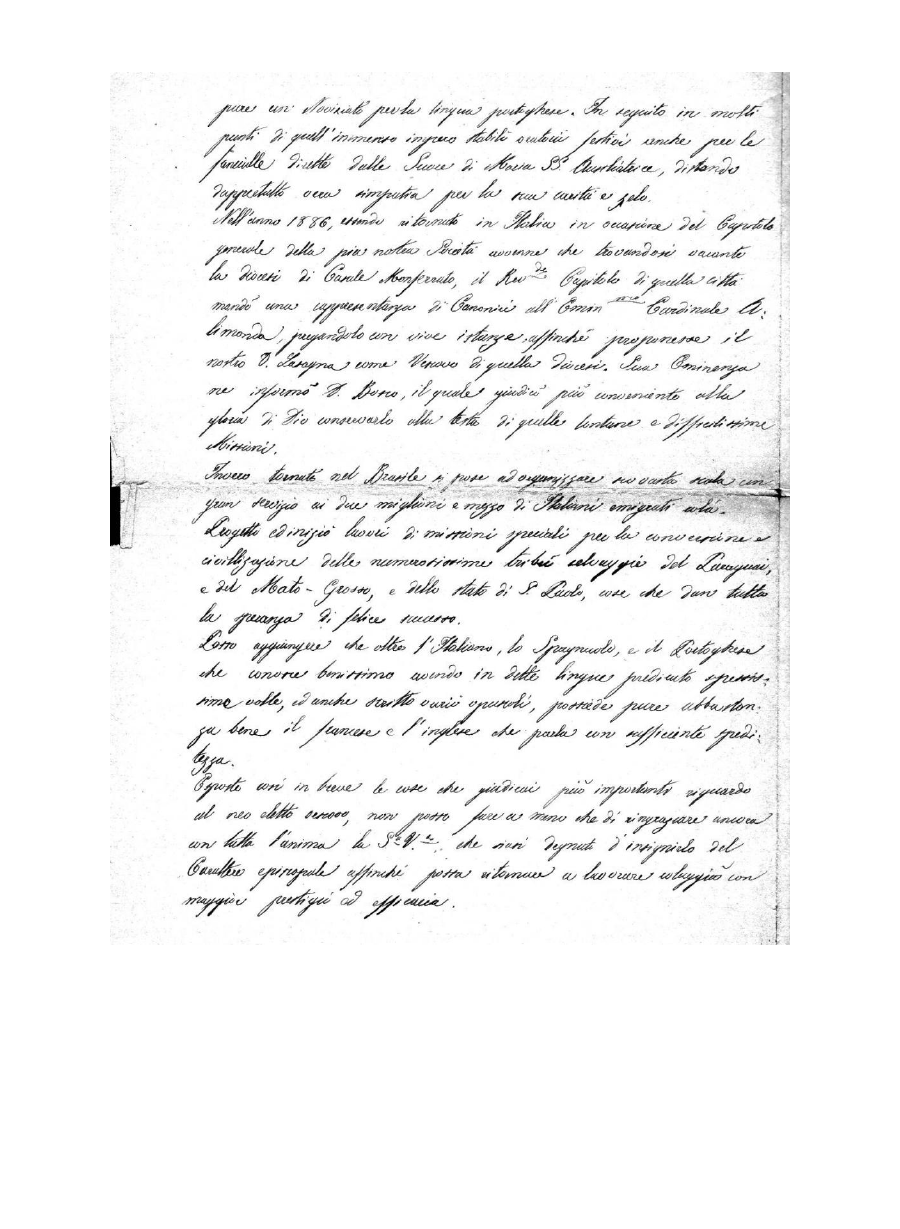 pure un Noviziato per la lingua portoghese. In seguito in molti
punti di quell'immenso impero stabilì oratorii festivi anche per le
fanciulle dirette dalle Suore di Maria SS. Ausiliatrice, destando
dappertutto viva simpatia per la sua carità e zelo.
Nell'anno 1886, essendo ritornato in Italia in occasione del Capitolo
generale della pia nostra Società avvenne che trovandosi vacante
la diocesi di Casale Monferrato, il Rev.do Capitolo di quella città
mandò una rappresentanza di Canonici all'Emin.mo Cardinale A-
limonda, pregandolo con vive istanze affinché proponesse il
nostro D. Lasagna come Vescovo di quella diocesi. Sua Eminenza
ne informò D. Bosco, il quale giudicò più conveniente alla
gloria di Dio conservarlo alla testa di quelle lontane e difficilissime
Missioni.
tornato nel Brasile si pose ad organizzare su vasta scala un
gran servizio ai due miglioni e mezzo di Italiani emigrati colà.
Progettò ed iniziò lavori di missioni speciali per la conversione e
civillizazione delle numerosissime tribù selvaggie del Paraguai,
e del Mato-Grosso, e dello stato di S. Paolo, cose che dan tutta
la speranza di felice successo.
Posso aggiungere che oltre l'Italiano, lo Spagnuolo, e il Portoghese
che conosce benissimo avendo in dette lingue predicato spessis-
sime volte, ed anche scritto varii opuscoli, possede pure abbastan-
za bene il francese e l'inglese che parla con sufficiente spedi-
tezza.
Esposte così in breve le cose che giudicai più importanti riguardo
al neo eletto vescovo, non posso fare a meno che di ringraziare ancora
con tutta l'anima la S.ta V.ra, che siasi degnata d'insignirlo del
Carattere episcopale affinché possa ritornare a lavorare colaggiù con
maggior prestigio ed efficacia.